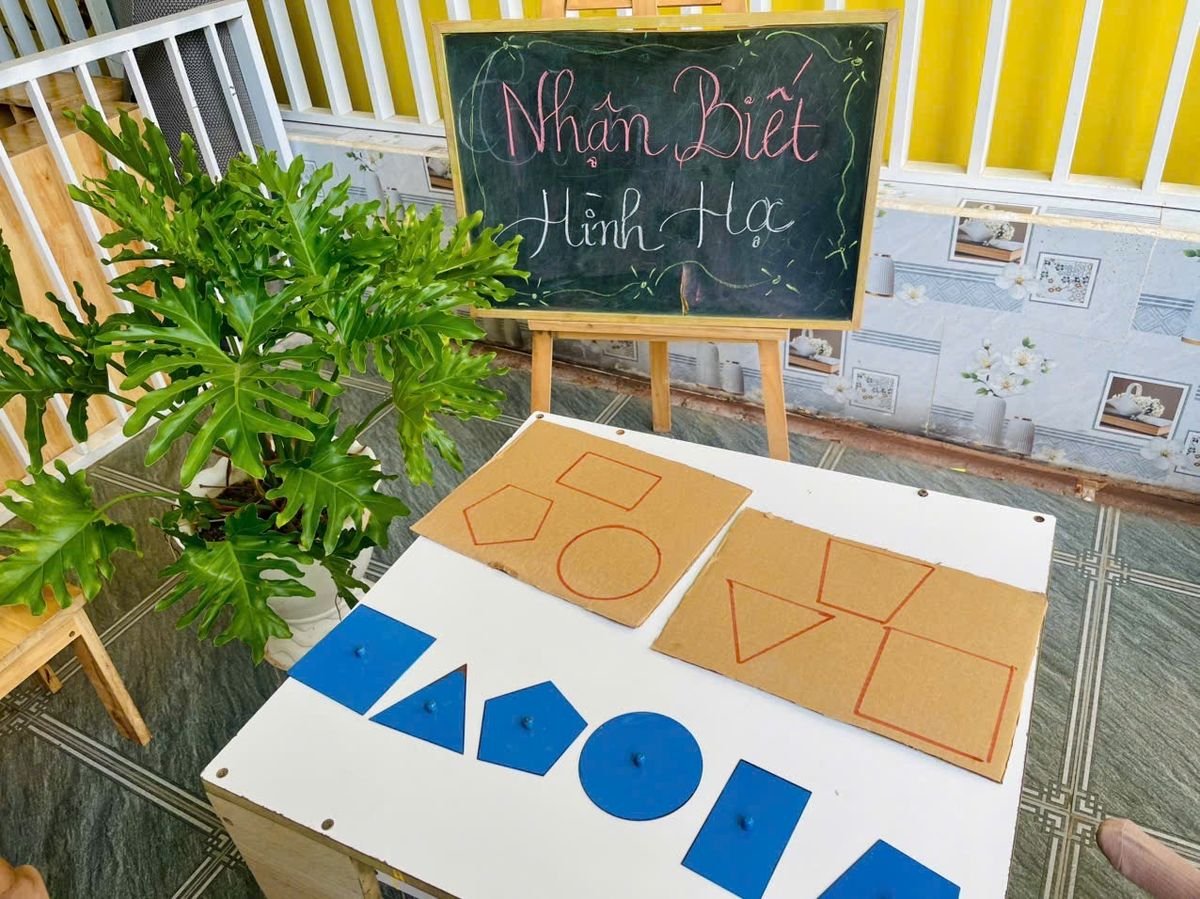 Nhận Biết
Hình Học